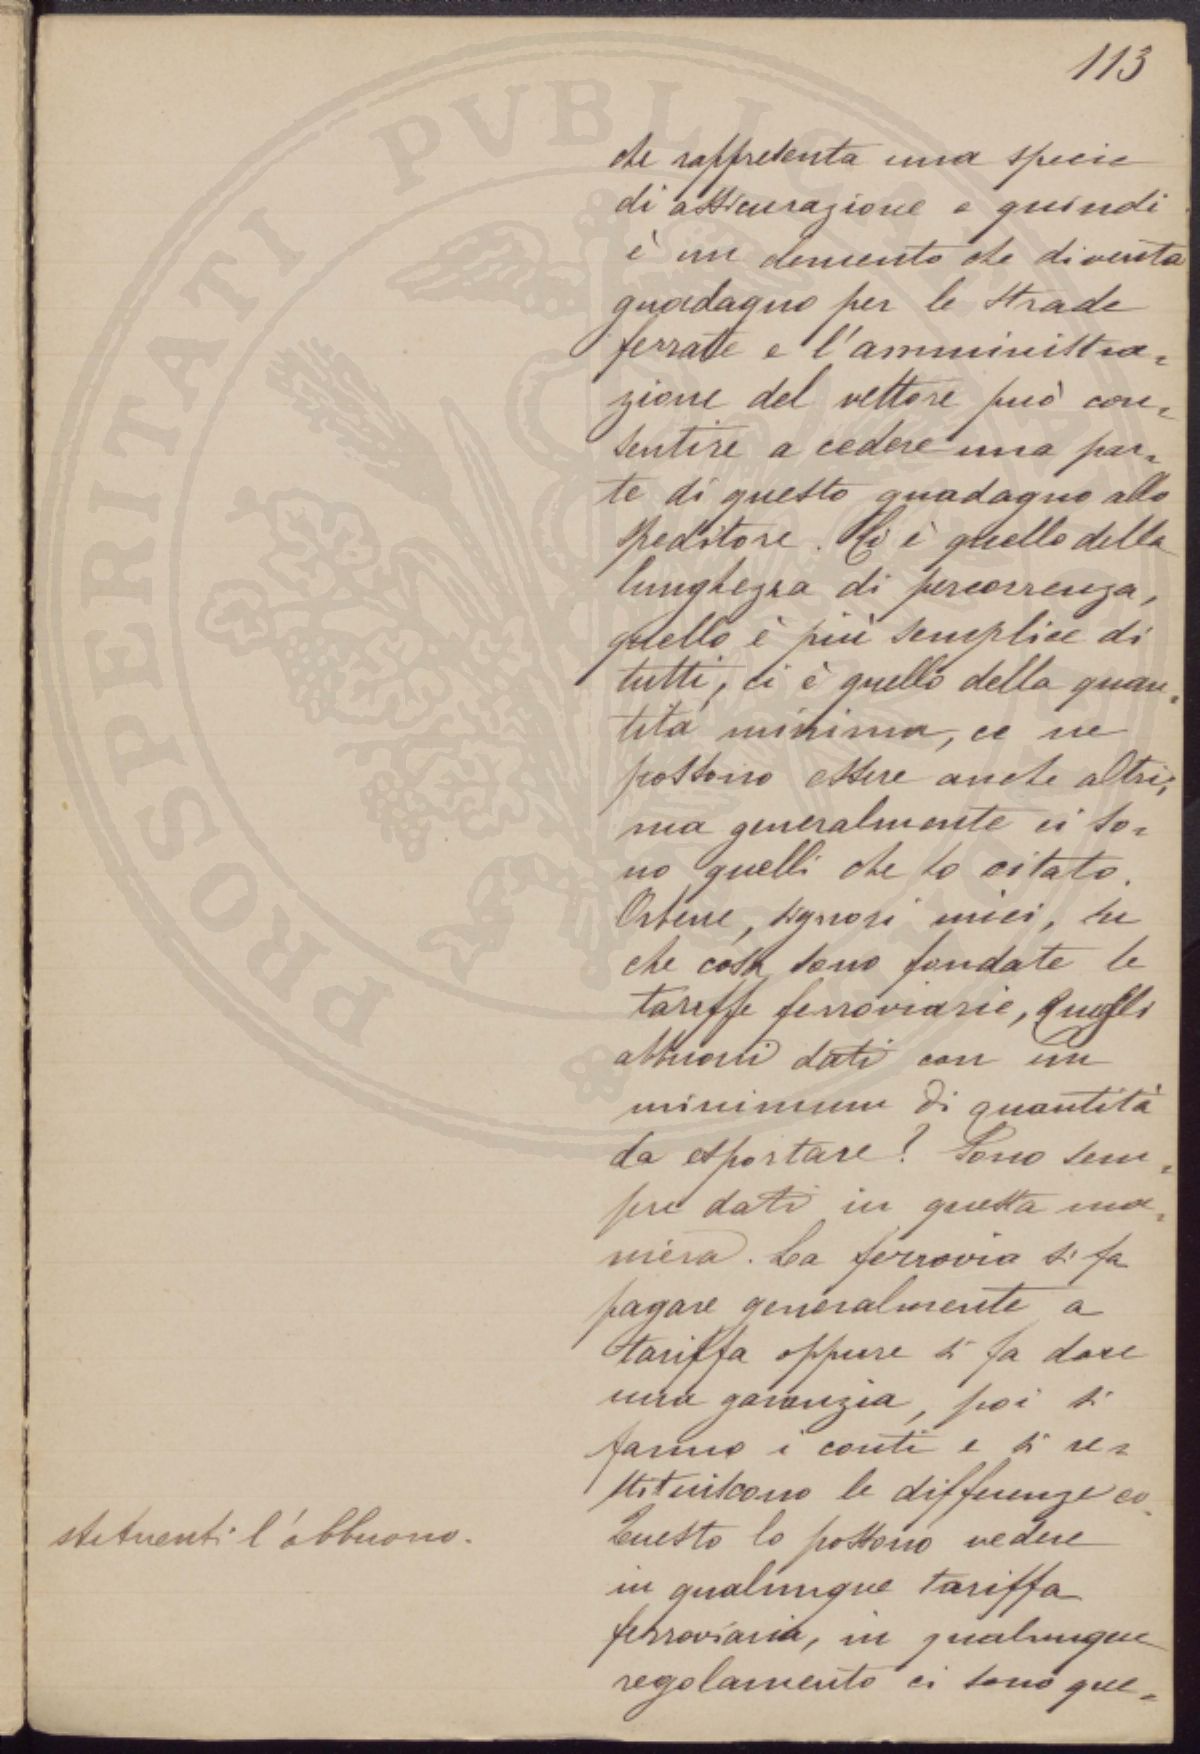 113
che rappresenta una specie
di assicurazione e quindi
è un elemento che diventa
guadagno per le strade
ferrate e l'amministra=
zione del vettore può con=
sentire a cedere una par=
te di questo guadagno allo
speditore. Ci è quello della
lunghezza di percorrenza,
quello è più semplice di
tutti, ci è quello della quan=
tità minima, ce ne
possono essere anche altri,
ma generalmente ci so=
no quelli che ho citato.
Orbene, signori miei, su
che cosa sono fondate le
tariffe ferroviarie, quegli
abbuoni dati con un
minimum di quantità
da esportare? Sono sem=
pre dati in questa ma=
niera. La ferrovia si fa
pagare generalmente a
tariffa oppure si fa dare
una garanzia, poi si
fanno i conti e si re=
stituiscono le differenze co=
stituenti l'abbuono.
Questo lo possono vedere
in qualunque tariffa
ferroviaria, in qualunque
regolamento ci sono que=
PROSPERITATI PVBLICAE